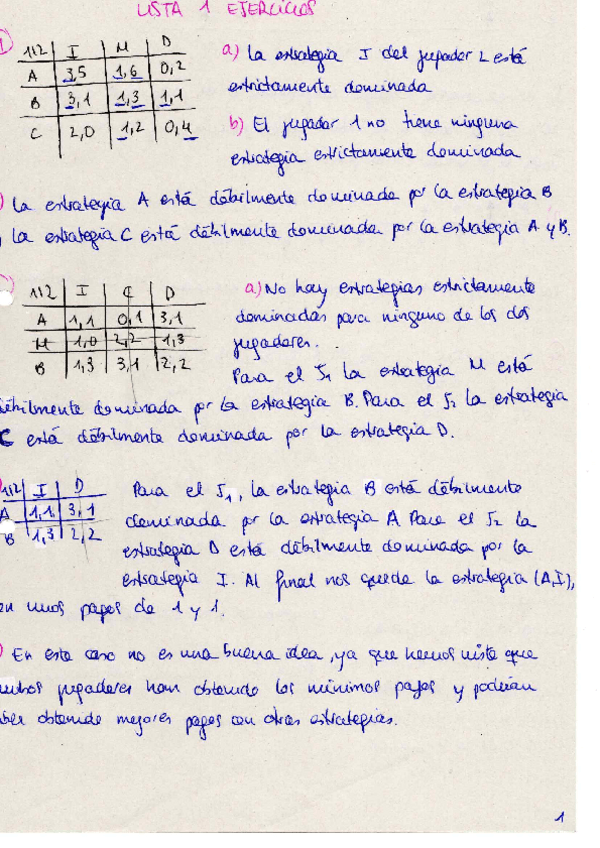 LISTA 1 EJERCICIOS
1) 1\2 | I | M | D a) La estrategia I del jugador 2 está
A | 3,5 | 1,6 | 0,2 estrictamente dominada
B | 3,1 | 1,3 | 1,1 b) El jugador 1 no tiene ninguna
C | 2,0 | 1,2 | 0,4 estrategia estrictamente dominada
) La estrategia A está débilmente dominada por la estrategia B
, la estrategia C está débilmente dominada por la estrategia A y B.
1\2 | I | C | D a) No hay estrategias estrictamente
A | 1,1 | 0,1 | 3,1 dominadas para ninguno de los dos
M | 1,0 | 2,2 | 1,3 jugadores.
B | 1,3 | 3,1 | 2,2 Para el J1 la estrategia M está
débilmente dominada por la estrategia B. Para el J2 la estrategia
C está débilmente dominada por la estrategia D.
1\2 | I | D Para el J1, la estrategia B está débilmente
A | 1,1 | 3,1 dominada por la estrategia A Para el J2 la
B | 1,3 | 2,2 estrategia D está débilmente dominada por la
estrategia I. Al final nos queda la estrategia (A,I),
en unos pagos de 1 y 1.
) En este caso no es una buena idea, ya que hemos visto que
ambos jugadores han obtenido los mínimos pagos y podrían
aber obtenido mejores pagos con otras estrategias.
1